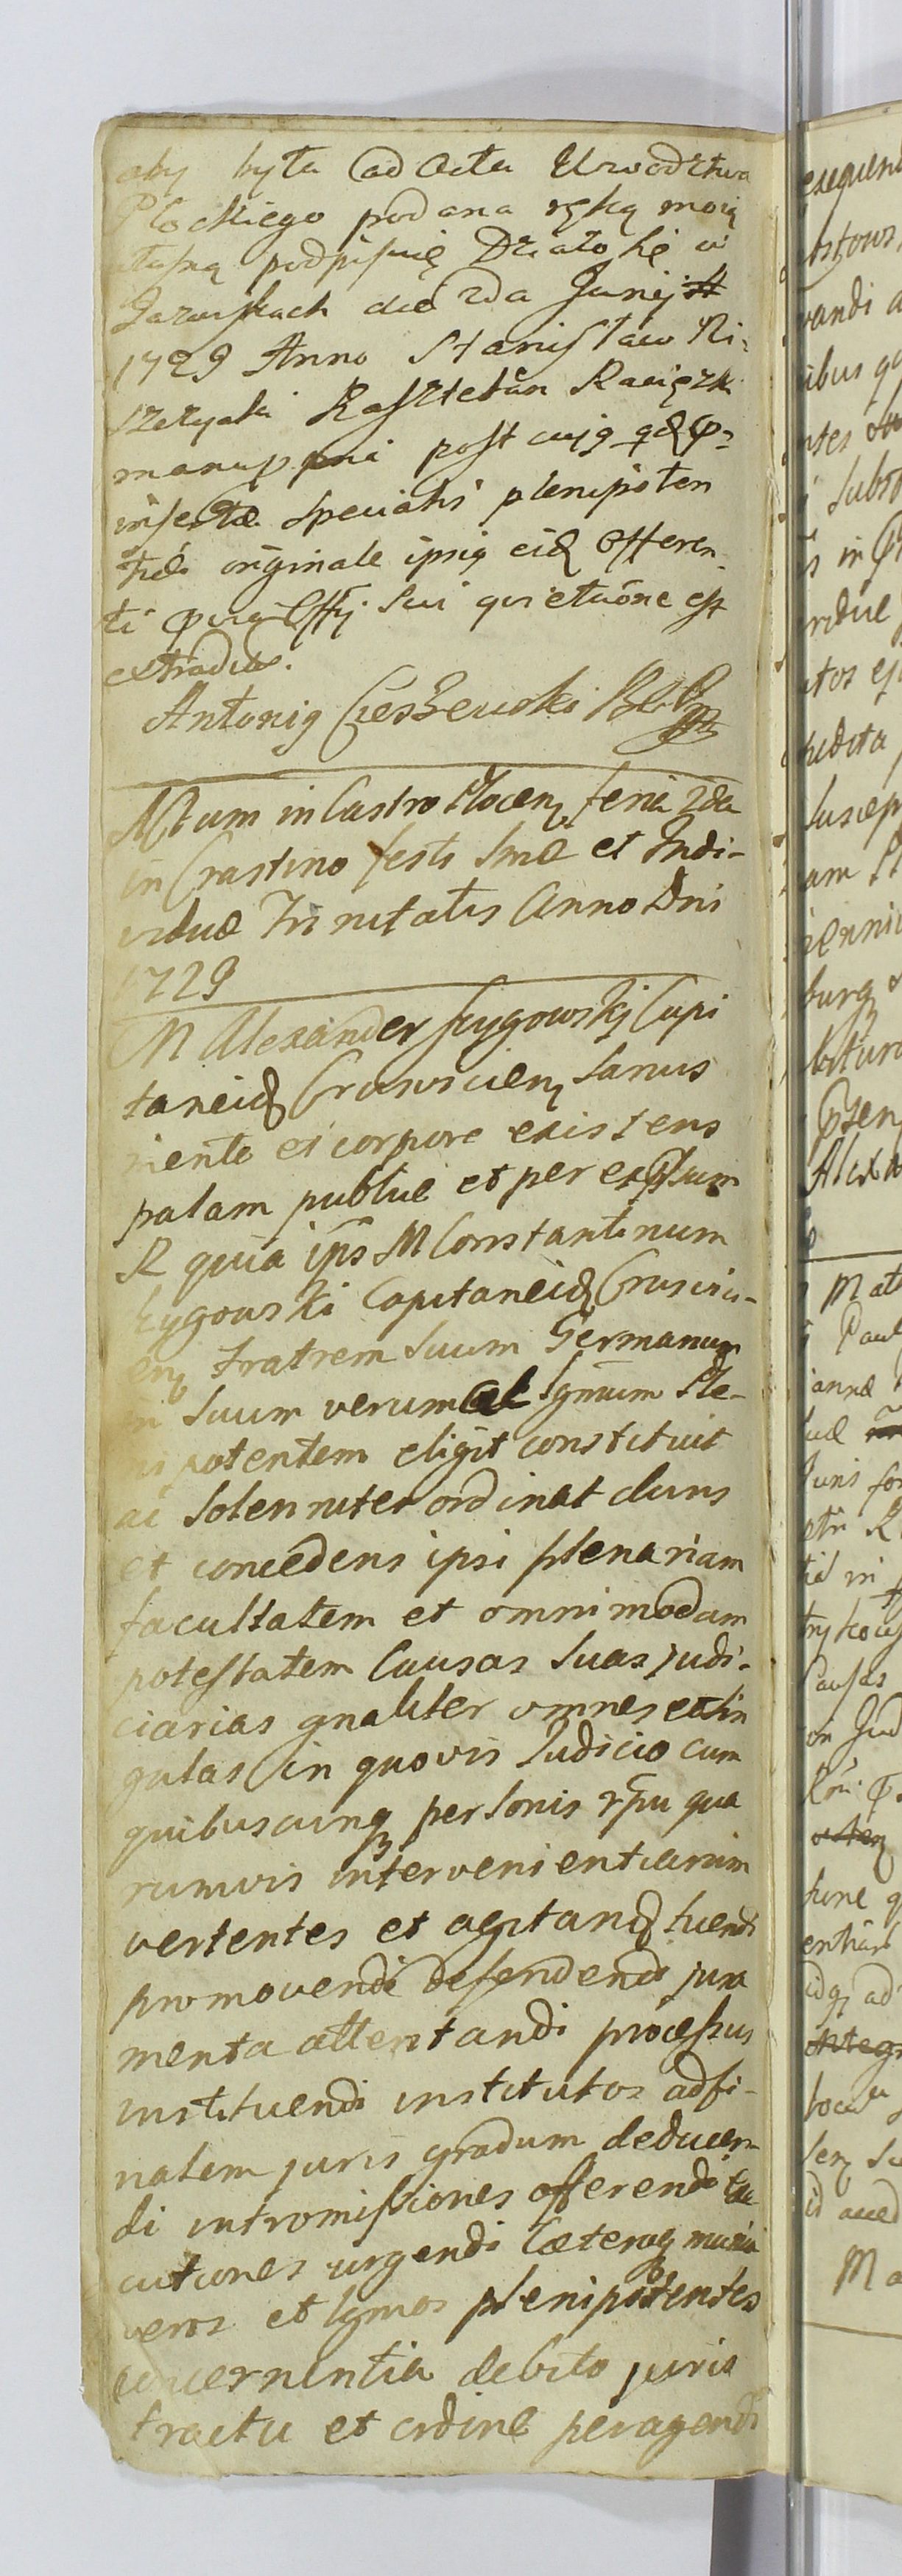 aby była ad Acta Urzędztwa
Płockiego podana ręką moią
własną podpisuię Działo się w
Jaroszkach die 2da Junij
1729 Anno Stanisław Ni-
szczycki Kasztelan Raciązki
manu ppria post cujg qdē p
insertæ specialis plenipoten
tiæ originale ipsig eidē Offeren
ti pr Offij sui quietatiõne est
extraditū.
Antonig Cieszewski
Actum in Castro Płocenꝫ feria 2da
in Crastino festi Smæ et Indi-
viduæ Trinitatis Anno Dni
1729
M Alexander Zygowskj Capi
taneidꝫ Crusviciénꝫ sanus
mente et corpore existens
palam publice et per expssum
R quia ips M Constantinum
Zygowski Capitaneidꝫ Crusvici-
enꝫ Fratrem suum Germanum
in suum verum et lgmum Ple-
nipotentem eligit constituit
ac solenniter ordinat dans
et concedens ipsi plenariam
facultatem et omnimodam
potestatem Causas suas judi-
ciarias gnaliter omnes et sin
gulas in quovis Judicio cum
quibuscunqꝫ personis rpu qua
rumvis intervenientiarum
vertentes et agitandꝫ tuendi
promovendi defendendi jura
menta attentandi processus
instituendi institutos ad fi-
nalem juris gradum deducen-
di intromissiones offerendi Exe
cutiones urgendi Cæteraqꝫ munia
veros et lgmos plenipotentes
concernentia debito juris
tractu et ordine peragendi